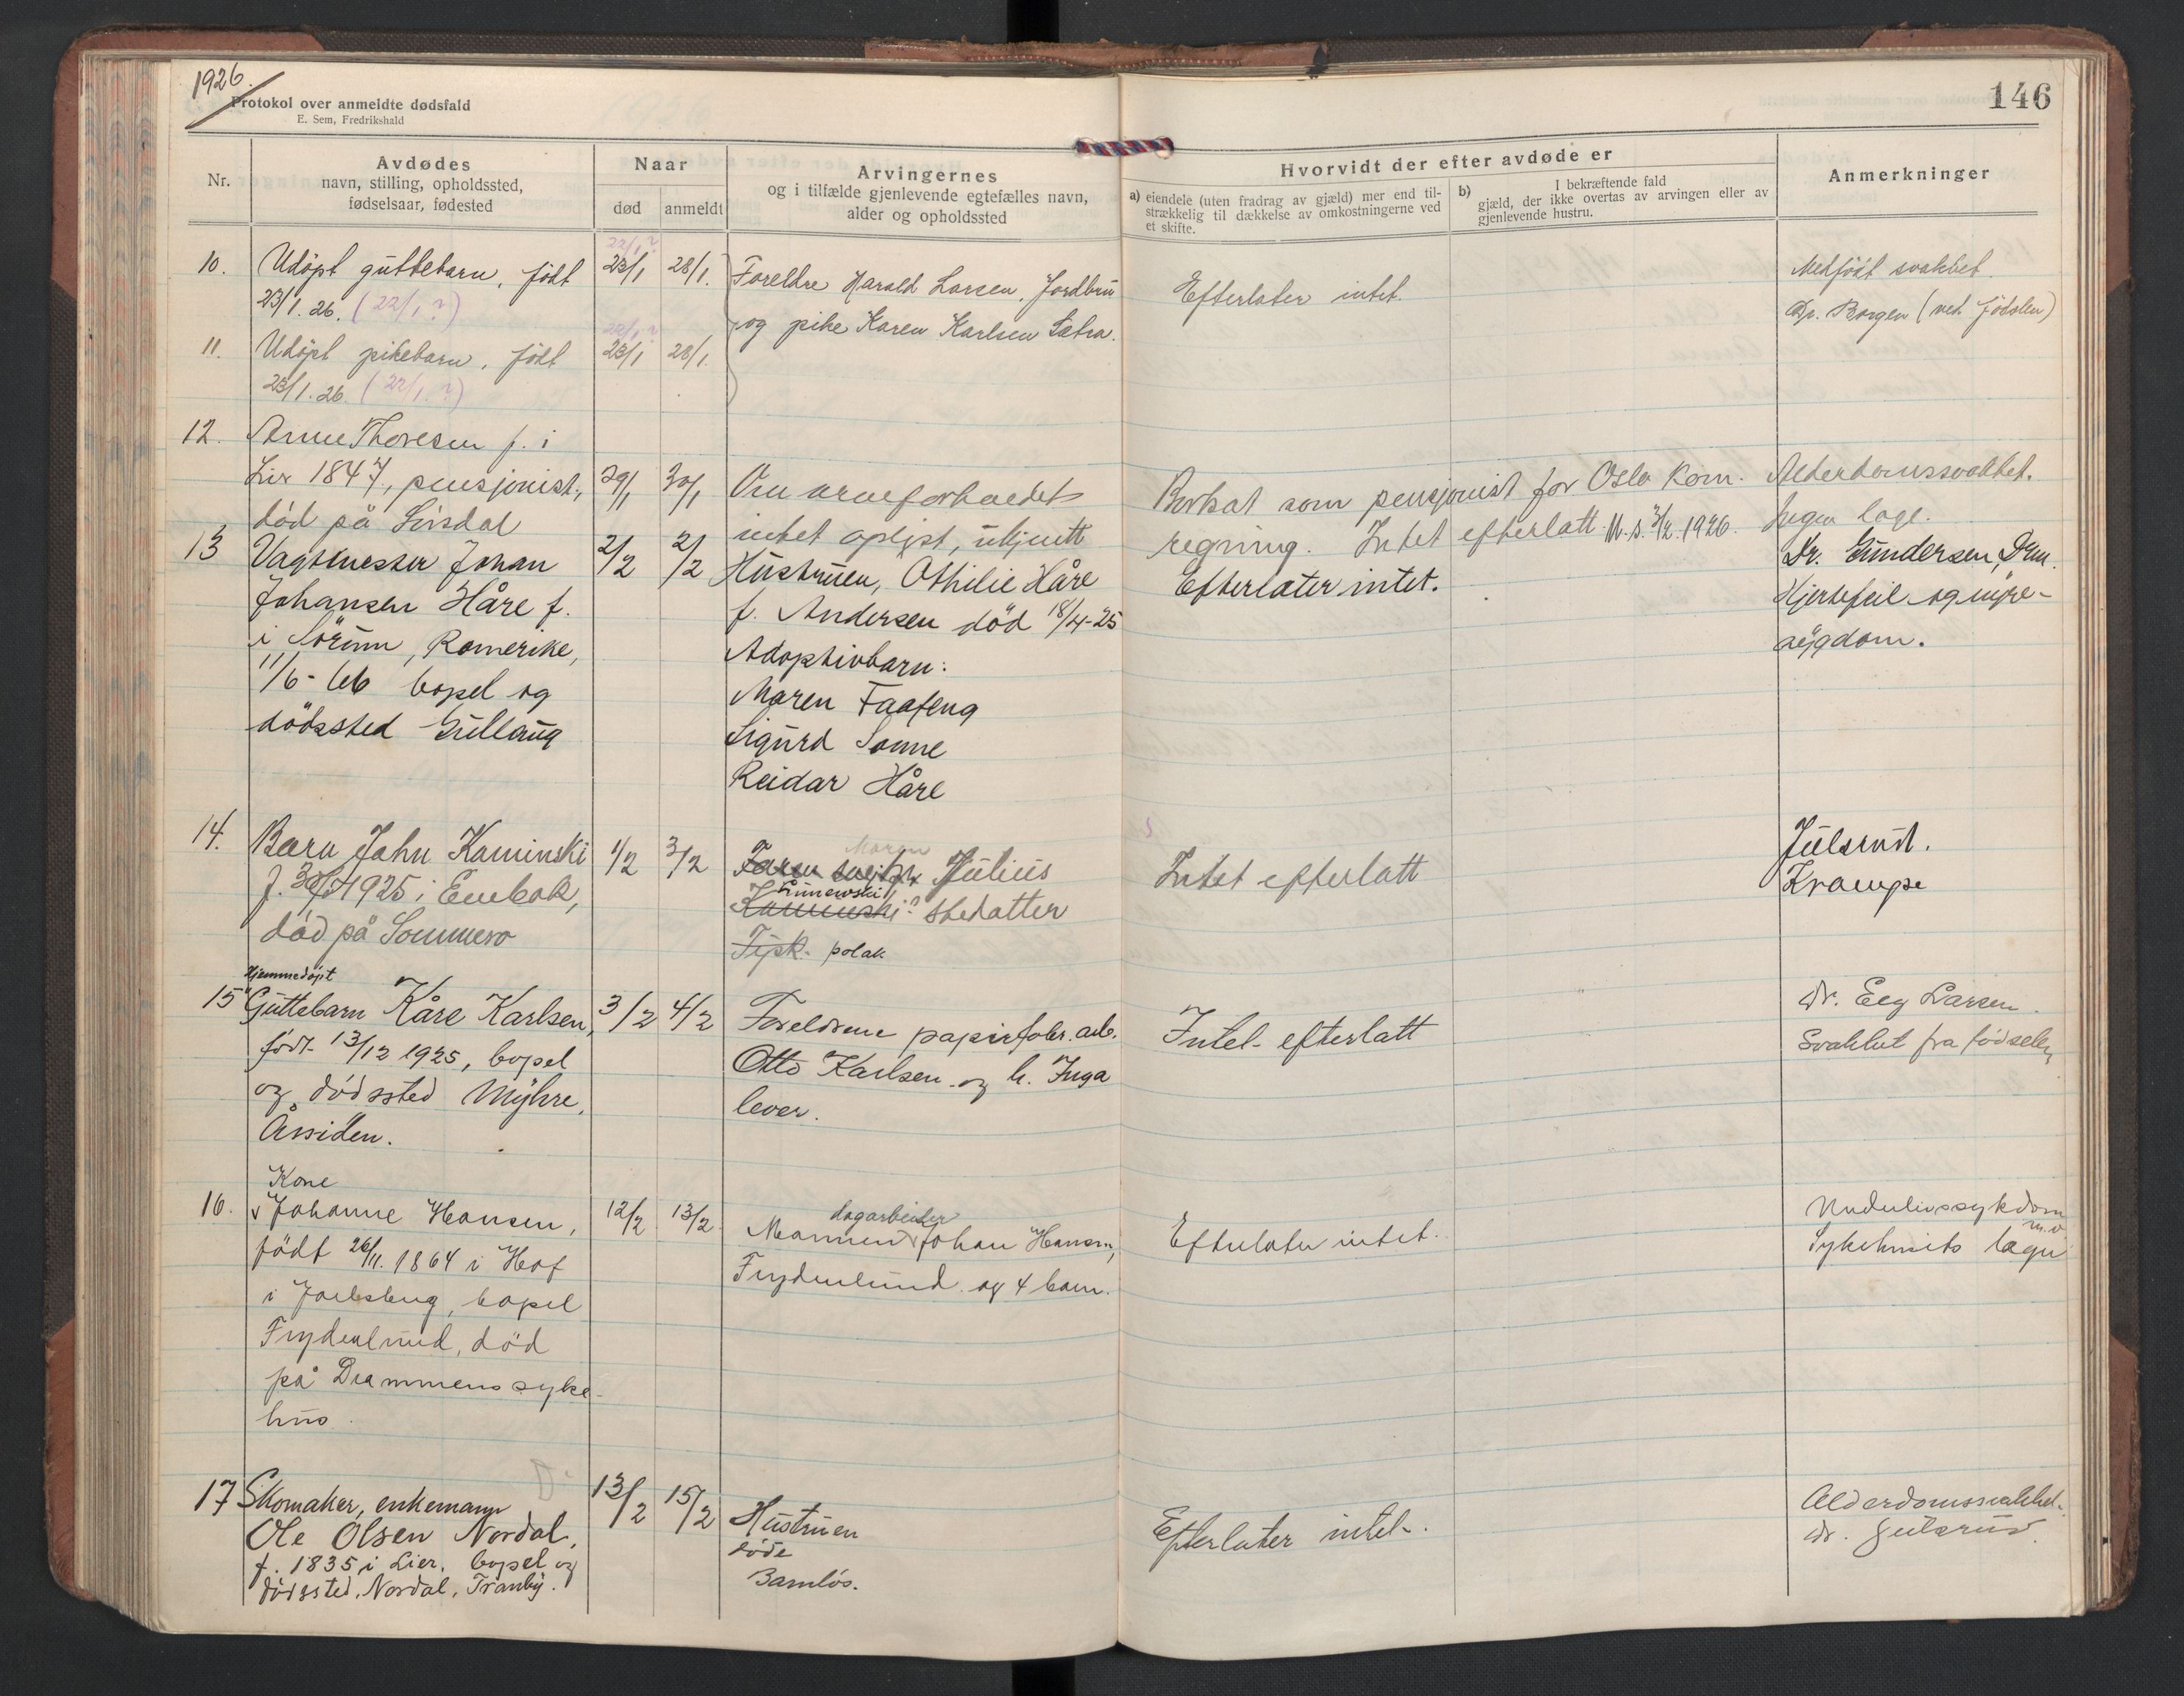 1926.
Protokol over anmeldte dødsfald
E. Sem, Fredrikshald
146
Nr.
Avdødes
navn, stilling, opholdssted,
fødselsaar, fødested
Naar
død
anmeldt
Arvingernes
og i tilfælde gjenlevende egtefælles navn,
alder og opholdssted
Hvorvidt der efter avdøde er
a) eiendele (uten fradrag av gjæld) mer end til-
strækkelig til dækkelse av omkostningerne ved
et skifte.
b) I bekræftende fald
gjæld, der ikke overtas av arvingen eller av
gjenlevende hustru.
Anmerkninger
10. Udöpt guttebarn, født
23/1. 26. (22/1 ?)
22/1 ?
23/1
28/1.
Foreldre Harald Larsen, Jordbru
og pike Karen Karlsen Sætra.
Efterlater intet.
Medfödt svakhet.
Dr. Borgen (ved födslen)
11. Udöpt pikebarn, født
23/1. 26. (22/1. ?)
22/1 ?
23/1
28/1.
12. Anne Thoresen f. i
Lier 1847, pensjonist,
død på Linsdal
29/1
30/1
Om arveforholdet
intet oplyst, ukjent
Bortsat som pensjonist for Oslo kom.
regning. Intet efterlatt. M.S. 2/2. 1926.
Alderdomssvakhet.
Ingen læge.
13 Vagtmester Johan
Johansen Håre f.
i Sörum, Romerike,
11/6-66 bopel og
dödssted Gullaug
2/2
2/2
Hustruen, Othilie Håre
f. Andersen död 18/4-25
Adoptivbarn:
Maren Faafeng
Sigurd Sonne
Reidar Håre
Efterlater intet.
Dr. Gundersen, Drm.
Hjertefeil og nyre-
sygdom.
14. Barn John Kaminski
f. 1925 i Enebak,
død på Sommero
1/2
3/2
Moren
Faren Julius
Kaminski stedatter
Tysk. polak
Intet efterlatt
Julsrud.
Krampe
Hjemmedøpt
15 Guttebarn Kåre Karlsen,
født 13/12 1925, bopel
og dödssted Myhre,
Åssiden.
3/2
4/2
Foreldrene papirfabr. arb.
Otto Karlsen og h. Inga
lever.
Intet efterlatt
Dr. Eeg Larsen.
Svakhet fra födselen
Kone
16. Johanne Hansen,
født 26/11. 1864 i Hof
i Jarlsberg, bopel
Frydenlund, död
på Drammens syke-
hus.
12/2
13/2
dagarbeider
Mannen Johan Hansen,
Frydenlund og 4 barn.
Efterlater intet.
Underlivssykdom
m.v.
Sykehusets læge
17 Skomaker, enkemann
Ole Olsen Nordal,
f. 1835 i Lier. bopel og
dödssted. Nordal, Tranby.
13/2
15/2
Hustruen
døde
Barnløs.
Efterlater intet.
Alderdomssvakhet.
Dr. Julsrud.